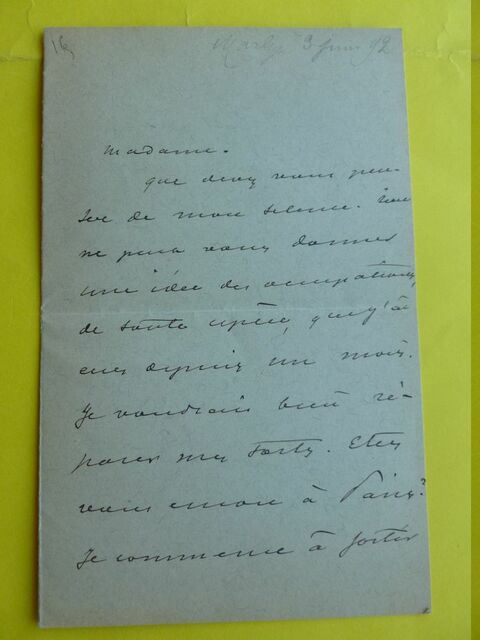 Marly 3 juin 92
Madame.
que devez vous pen-
ser de mon silence. Rien
ne peut vous donner
une idée des occupations,
de toute espèce, que j'ai
eues depuis un mois.
Je voudrais bien ré-
parer mes torts. Etes
vous encore à Paris?
Je commence à sortir